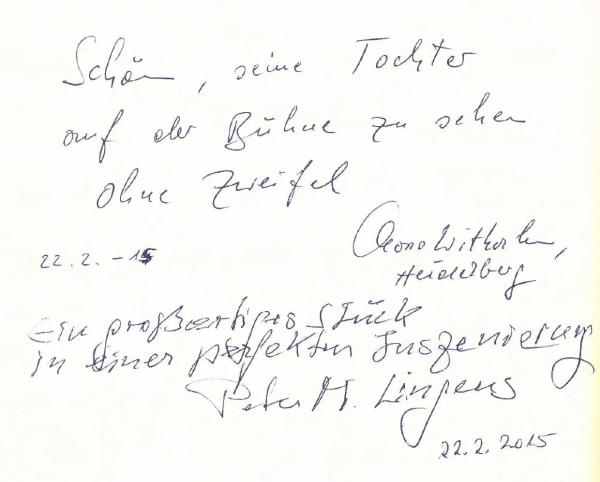 Schön, seine Tochter
auf der Bühne zu sehen
ohne Zweifel
22.2.-15
Heidelberg
Ein großartiges Stück
in einer perfekten Inszenierung
Peter M. Lingens
22.2.2015